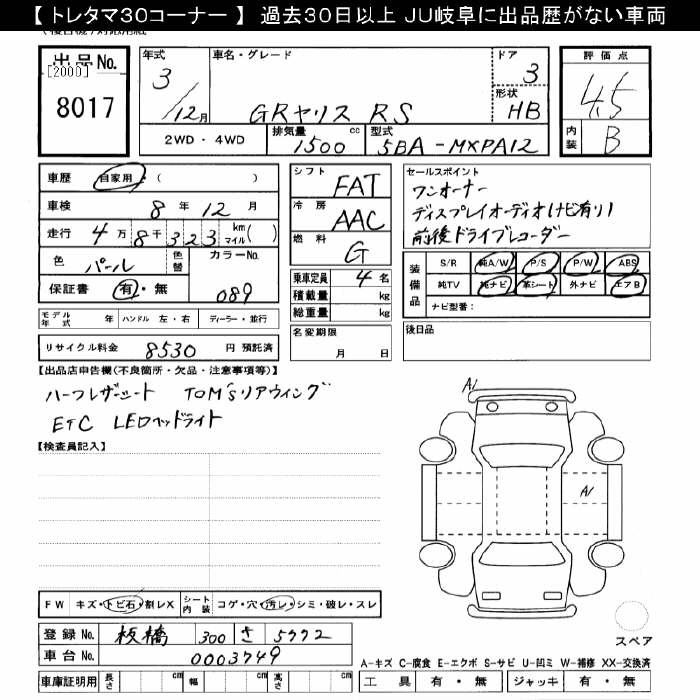 【 トレタマ30コーナー 】 過去30日以上 JU岐阜に出品歴がない車両
出品No.
[2000]
8017
年式
3
/12月
車名・グレード
GRヤリス RS
ドア
3
形状
HB
評価点
4.5
内装
B
2WD ・ 4WD
排気量
1500
cc
型式
5BA-MXPA12
車歴
自家用 ・ ( )
車検
8 年 12 月
走行
4 万 8 千 3 2 3 km マイル ( )
色
パール
色替
カラーNo.
089
保証書
有 ・ 無
モデル年式 年 ハンドル 左 ・ 右 ディーラー ・ 並行
リサイクル料金 8530 円 預託済
シフト
FAT
冷房
AAC
燃料
G
乗車定員 4 名
積載量 kg
総重量 kg
名変期限
月 日
セールスポイント
ワンオーナー
ディスプレイオーディオ(ナビ有り)
前後ドライブレコーダー
装備品
S/R 純A/W P/S P/W ABS
純TV 純ナビ 革シート 外ナビ エアB
ナビ型番:
後日品
【出品店申告欄(不良箇所・欠品・注意事項等)】
ハーフレザーシート TOM'sリアウィング
ETC LEDヘッドライト
【検査員記入】
A1
A1
スペア
FW キズ・トビ石・割レX シート内装 コゲ・穴・汚レ・シミ・破レ・スレ
登録No. 板橋 300 さ 5772
車台No. 0003749
車庫証明用 長さ cm 幅 cm 高さ cm
A-キズ C-腐食 E-エクボ S-サビ U-凹ミ W-補修 XX-交換済
工具 有 ・ 無 ジャッキ 有 ・ 無